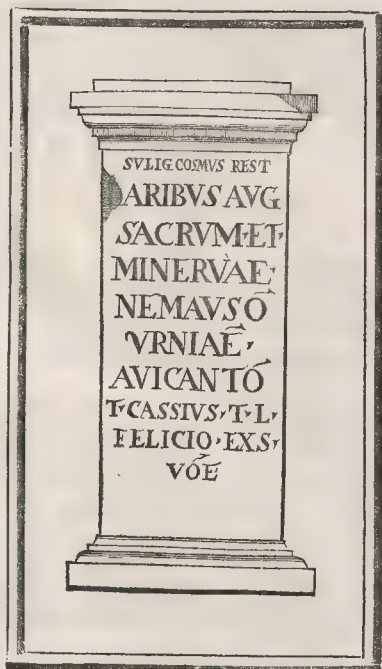 SVLIG COSMVS REST
ARIBVS AVG
SACRVM·ET·
MINERVAE·
NEMAVSO
VRNIAE·
AVICANTO
T·CASSIVS·T·L·
FELICIO·EX·S·
VOE